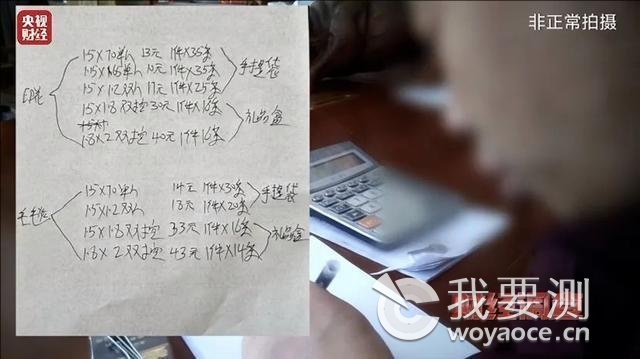 央视
财经
非正常拍摄
1.5×70单人 13元 1件×35条
10元 1件×35条
1.5×1.2双人 17元 1件×25条
手提袋
印花
1.5×1.8双控 30元 1件×16条
1.8×2双控 40元 1件16条
礼品盒
1.5×70单人 14元 1件×30条
1.5×1.2双人 18元 1件×20条
手提袋
1.5×1.8双控 33元 1件×16条
1.8×2双控 43元 1件×14条
礼品盒
我要测
woyaoce.cn